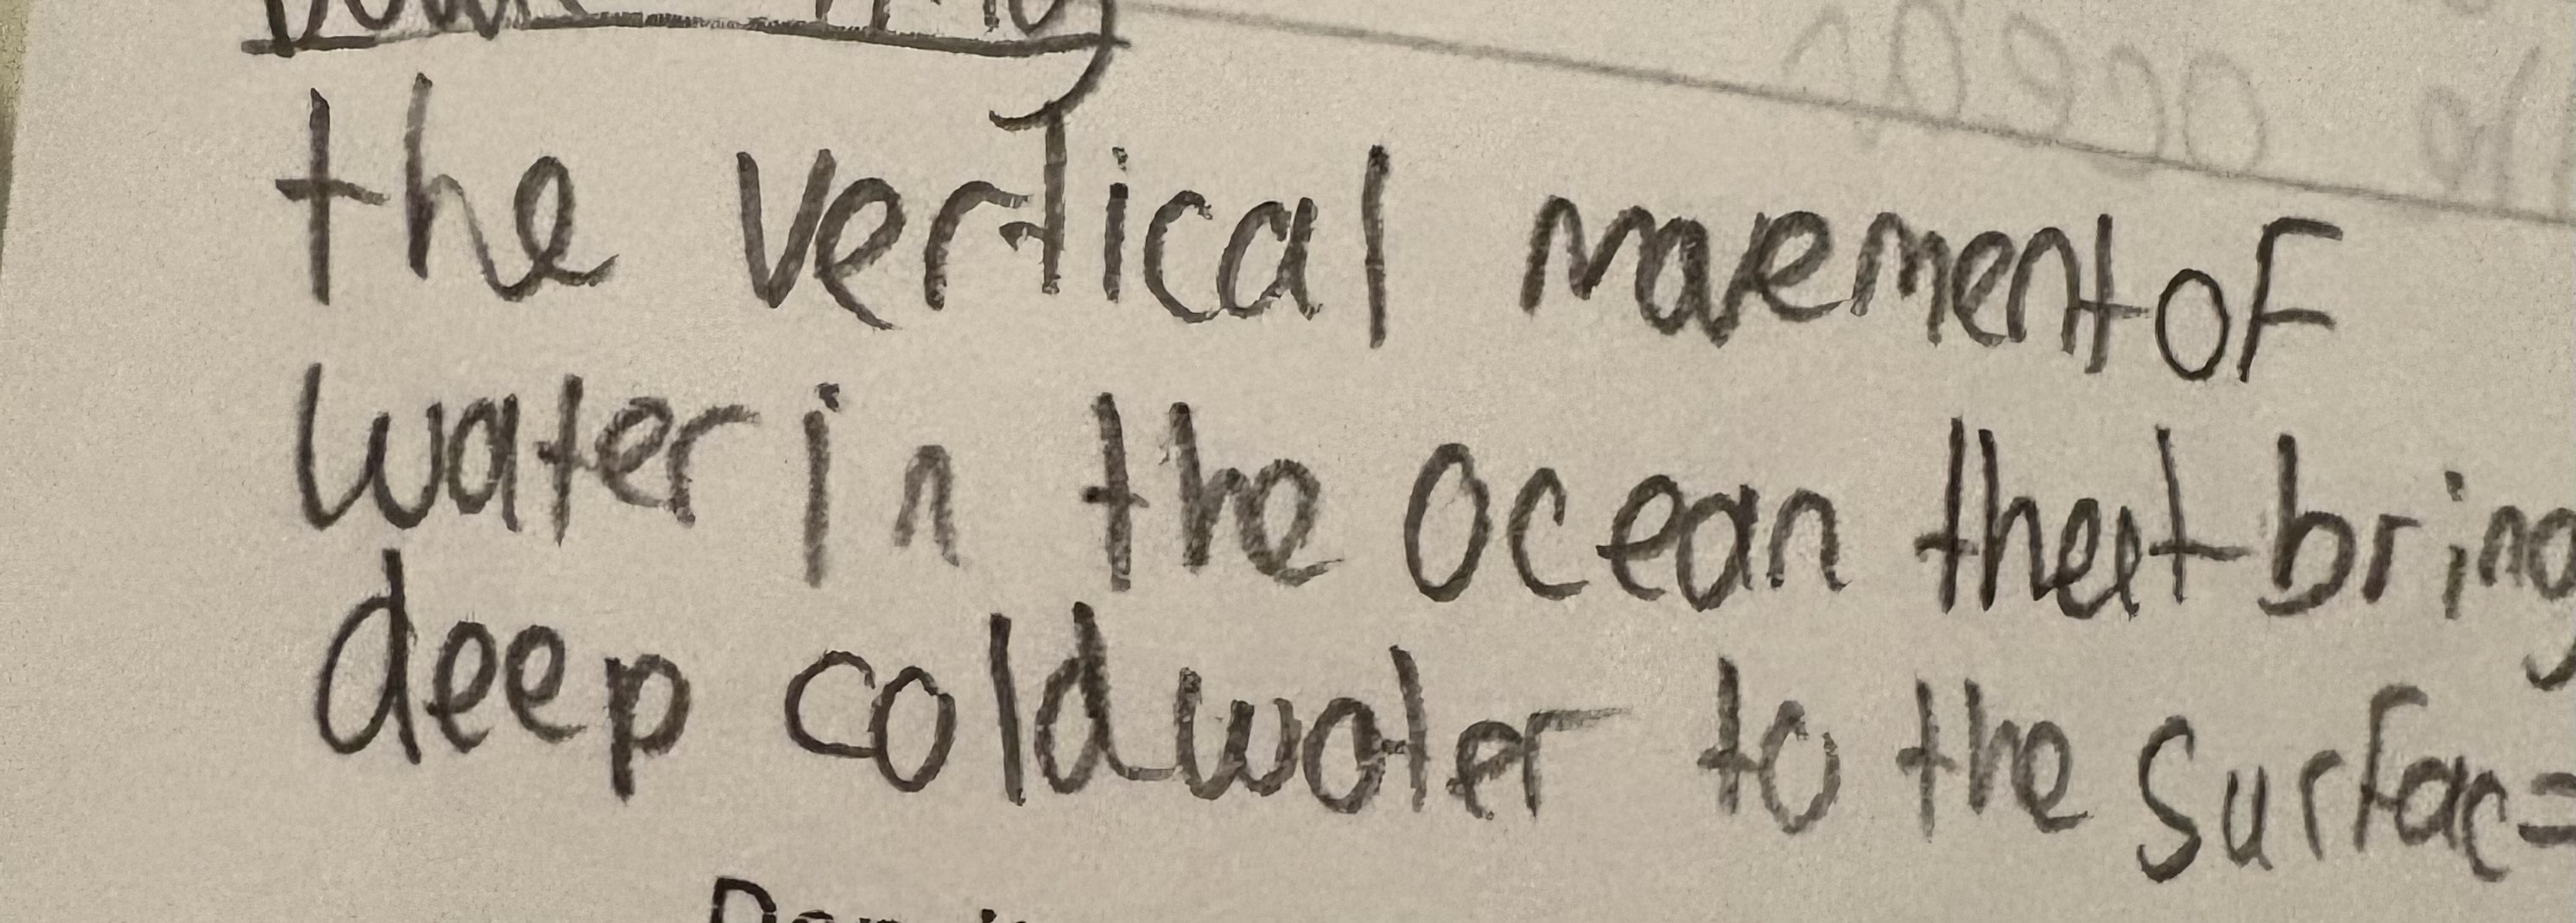 the vertical movement of
water in the ocean that bring
deep cold water to the surface